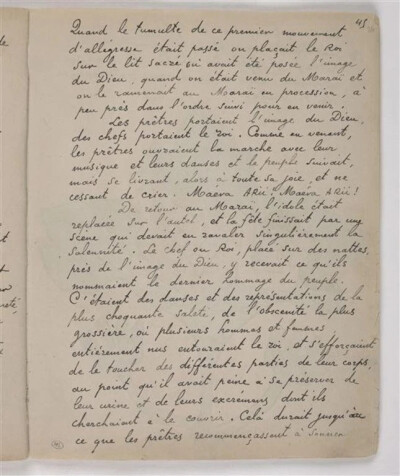 45
Quand le tumulte de ce premier mouvement
d'allegresse était passé on plaçait le Roi
sur le lit sacré où avait été posée l'image
du Dieu, quand on était venu du Marai et
on le ramenait au Marai en procession, à
peu près dans l'ordre suivi pour en venir.
Les prêtres portaient l'image du Dieu,
des chefs portaient le roi. Comme en venant,
les prêtres ouvraient la marche avec leur
musique et leurs danses et le peuple suivait,
mais se livrant, alors à toute sa joie, et ne
cessant de crier: Maéva ARii! Maéva ARii!
De retour au Marai, l'idole était
replacée sur l'autel, et la fête finissait par une
scène qui devait en ravaler singulièrement la
solennité. Le chef ou Roi, placé sur des nattes,
près de l'image du Dieu, y recevait ce qu'ils
nommaient le dernier hommage du peuple.
C'étaient des danses et des représentations de la
plus choquante saleté, de l'obscenité la plus
grossière, où plusieurs hommes et femmes,
entièrement nus entouraient le roi, et s'efforçaient
de le toucher des différentes parties de leur corps,
au point qu'il avait peine à se préserver de
leur urine et de leurs excrémens dont ils
cherchaient à le couvrir. Celà durait jusqu'à
ce que les prêtres recommençassent à sonner